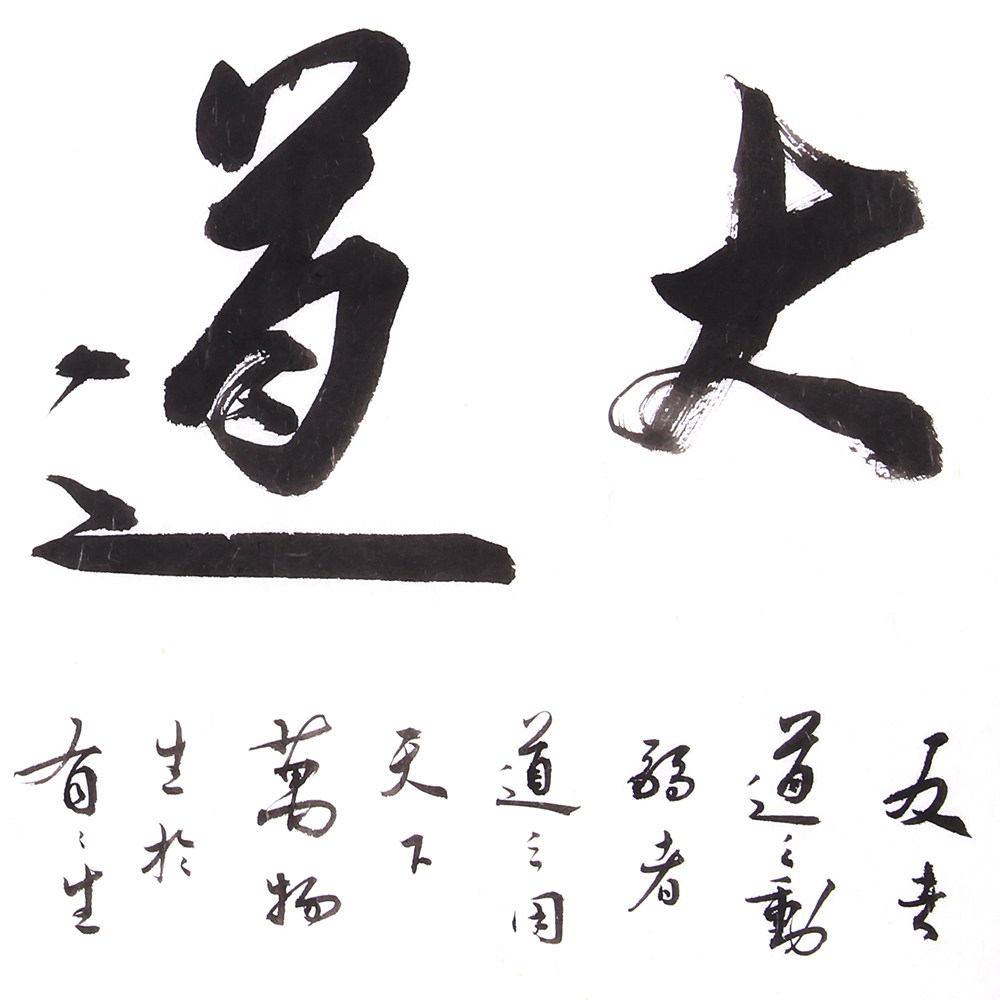 大道
反者
道之動
弱者
道之用
天下
萬物
生於
有〻生